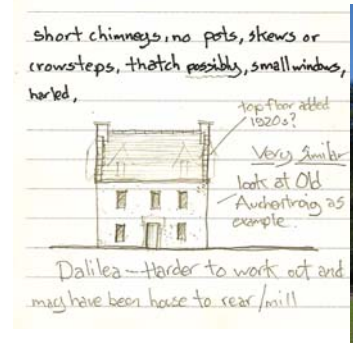 short chimneys, no pots, skews or
crowsteps, thatch possibly, small windows,
harled,
top floor added
1920s?
Very Similar
look at Old
Auchentroig as
example.
Dalilea – Harder to work out and
may have been house to rear/mill